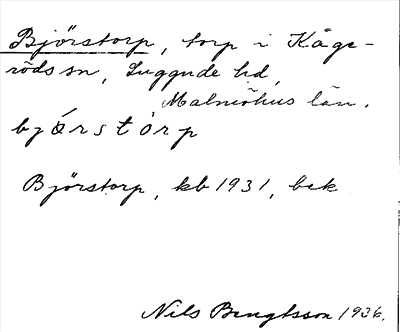 Björstorp, torp i Kåge-
röds sn, Luggude hd,
Malmöhus län.
bjö́rstòrp
Björstorp, kb 1931, bek
Nils Bengtsson 1936.